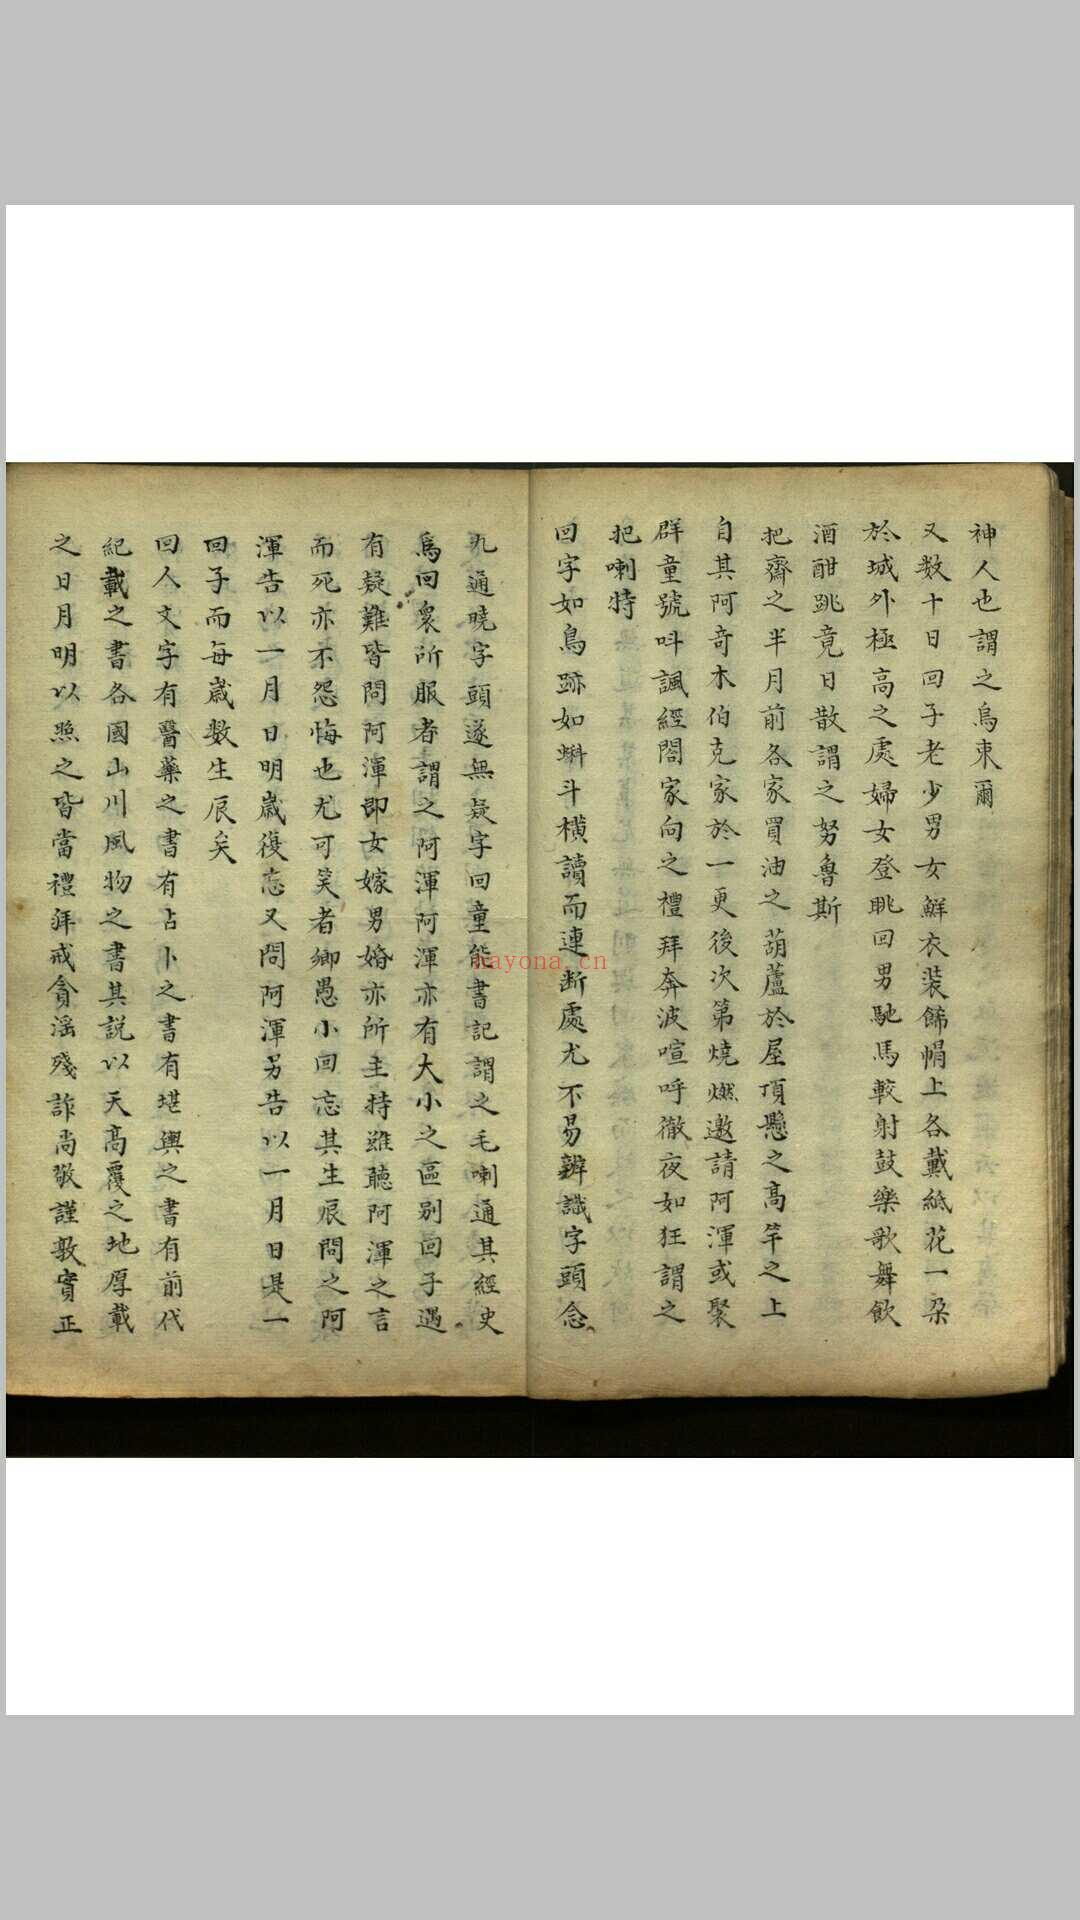 神人也謂之烏束爾
又数十日回子老少男女鮮衣装餙帽上各戴紙花一朶
於城外極高之處婦女登眺回男馳馬較射鼓樂歌舞飲
酒酣跳竟日散謂之努魯斯
把齋之半月前各家買油之葫蘆於屋頂懸之高竿之上
自其阿奇木伯克家於一更後次第燒燃邀請阿渾或聚
群童號呌諷經閤家向之禮拜奔波喧呼徹夜如狂謂之
把喇特
回字如鳥跡如蝌斗横讀而連断處尤不易辨識字頭念
九通曉字頭遂無疑字回童能書記謂之毛喇通其經史
爲回衆所服者謂之阿渾阿渾亦有大小之區别回子遇
有疑難皆問阿渾即女嫁男婚亦所主持雖聽阿渾之言
而死亦不怨悔也尤可笑者鄉愚小回忘其生辰問之阿
渾告以一月日明歲復忘又問阿渾另告以一月日是一
回子而每歲数生辰矣
回人文字有醫藥之書有占卜之書有堪輿之書有前代
紀載之書各國山川風物之書其説以天高覆之地厚載
之日月明以照之皆當禮拜戒貪滛殘詐尚敬謹敦實正
nayona.cn